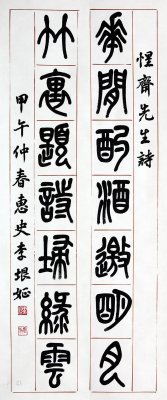 惺齋先生詩
華間酌酒邀明月
竹裏題詩掃綠雲
甲午仲春惠史李垠